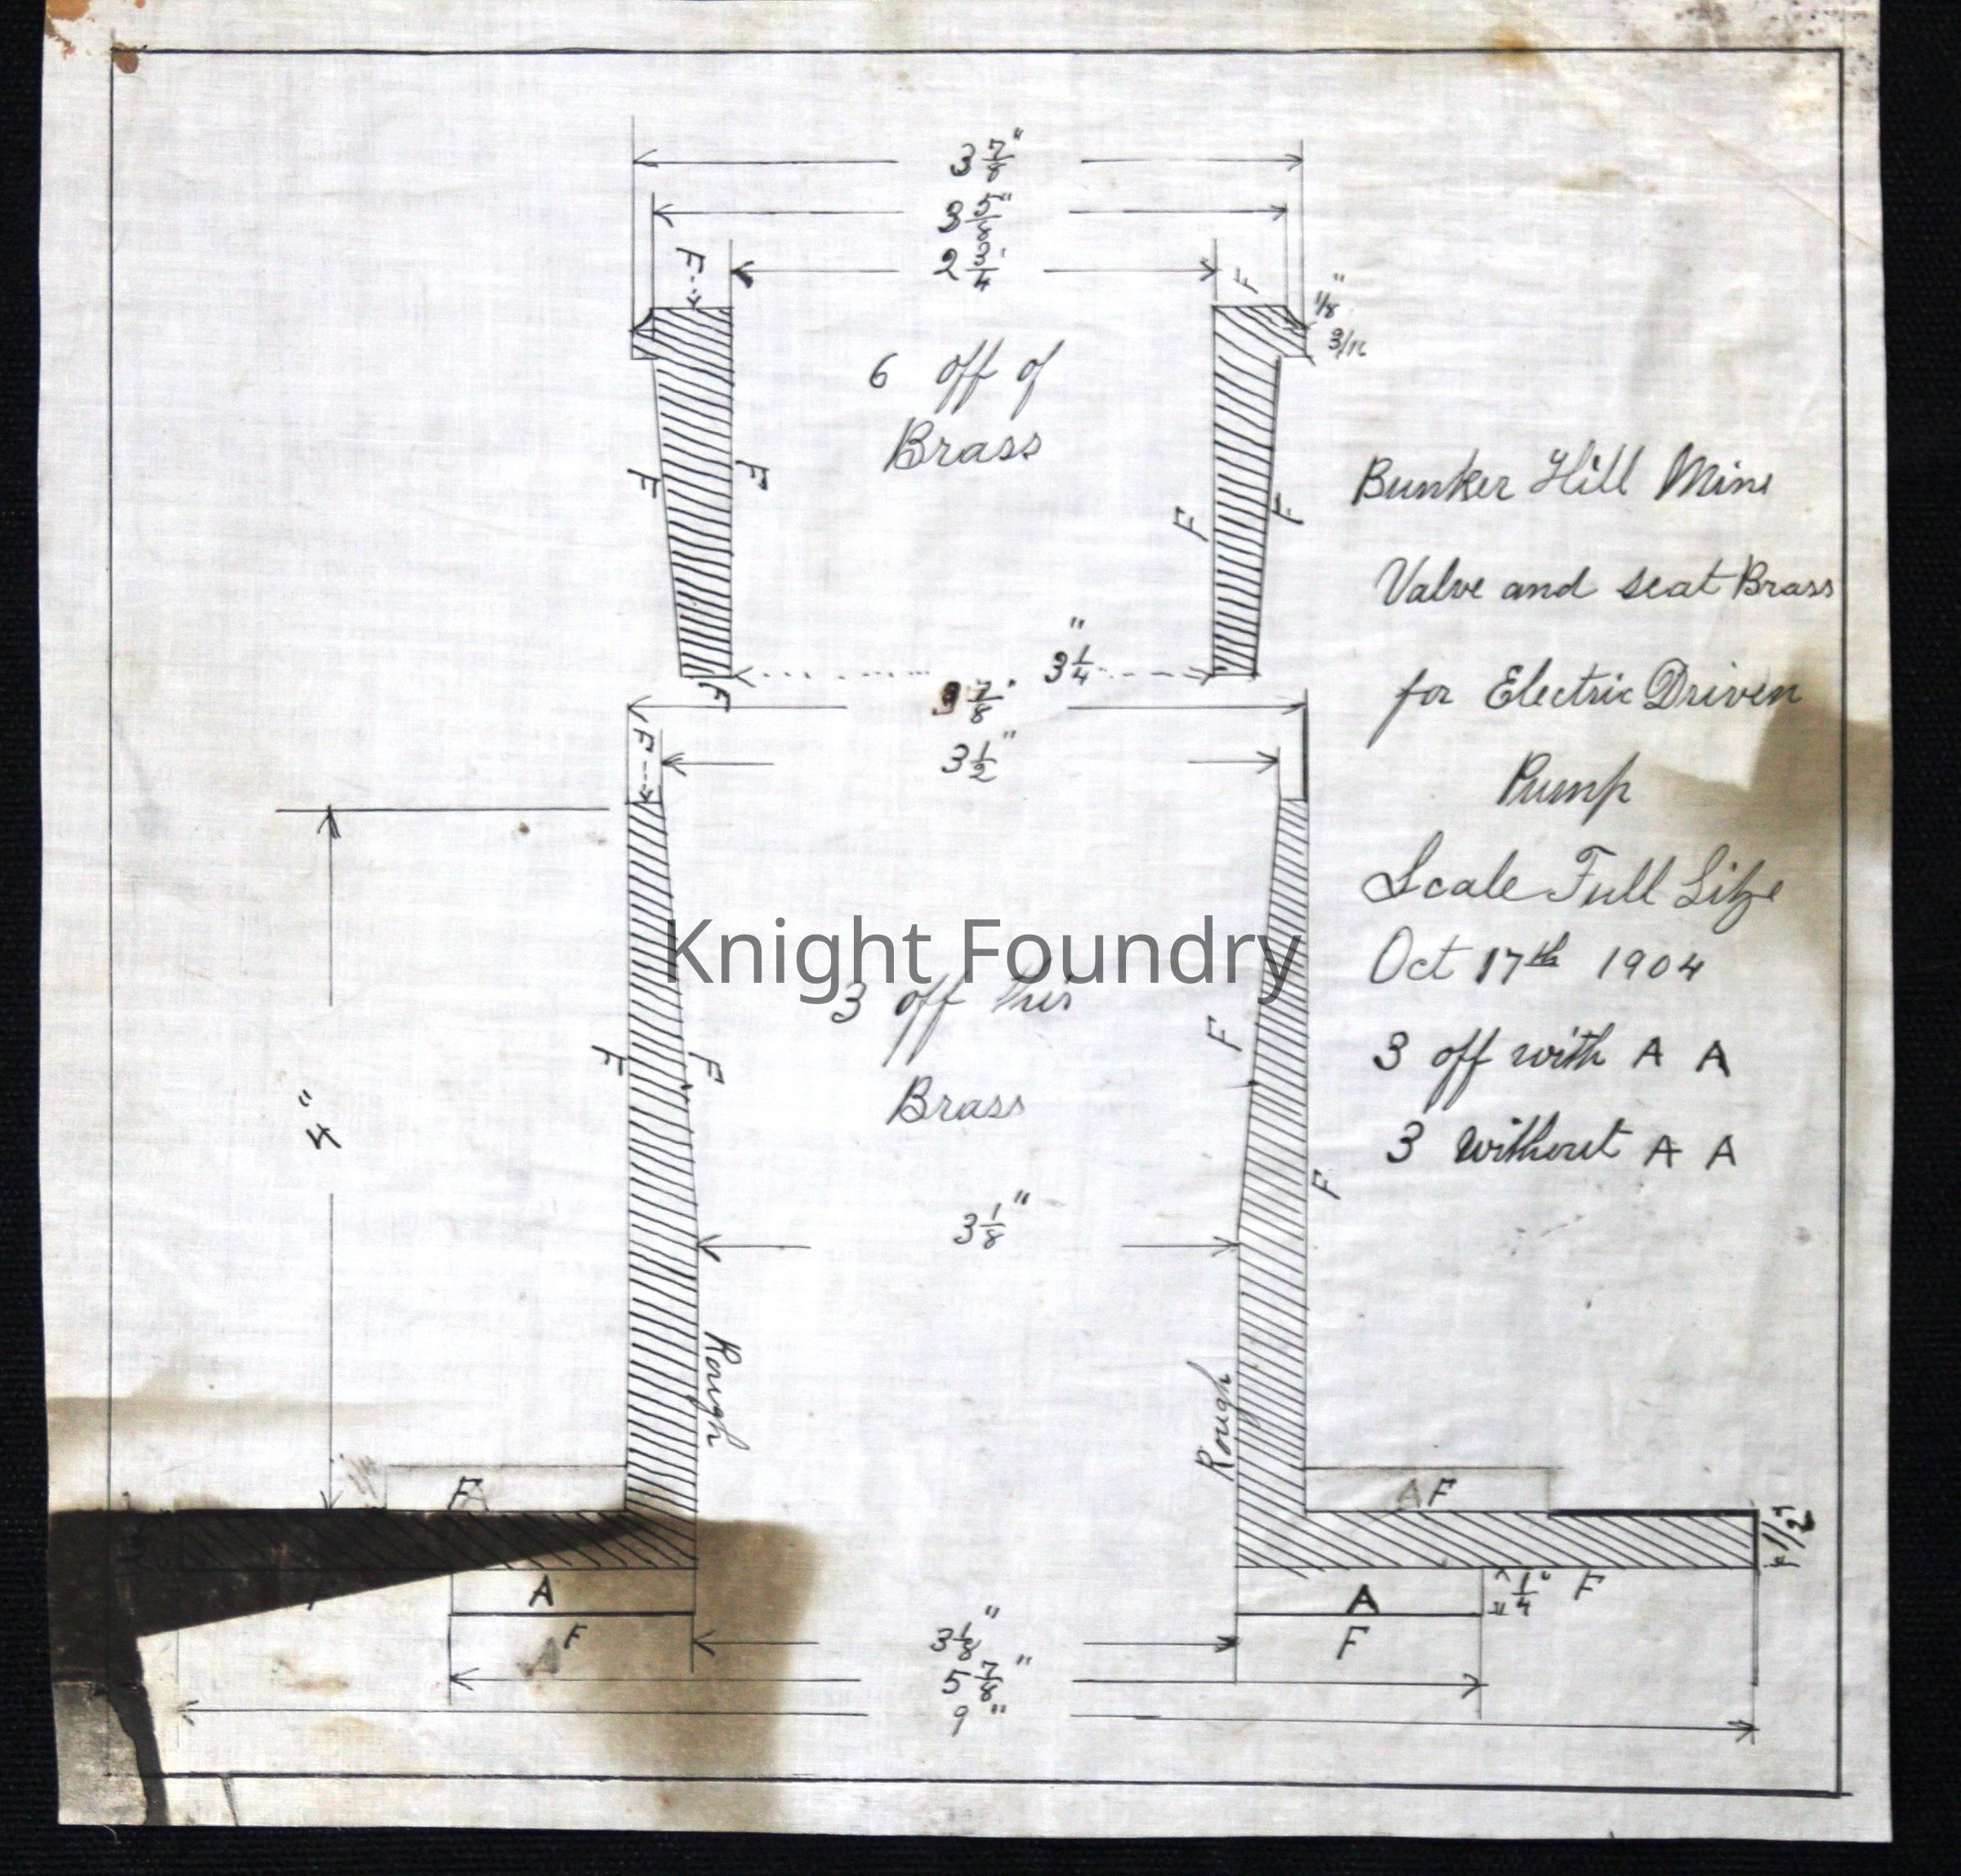 3 7/8"
3 5/8"
2 3/4"
F
F
1/8"
3/16
6 off of
Brass
F
F
F
F
Bunker Hill Mine
Valve and seat Brass
for Electric Driven
Pump
Scale Full Size
Oct 17th 1904
3 off with A A
3 without A A
3 1/4"
F
3 7/8"
F
3 1/2"
Knight Foundry
3 off this
Brass
F
F
F
F
4"
3 1/8"
Rough
Rough
F A
A F
1/2"
A
A
1/4"
F
F
F
3 1/8"
5 7/8"
9"